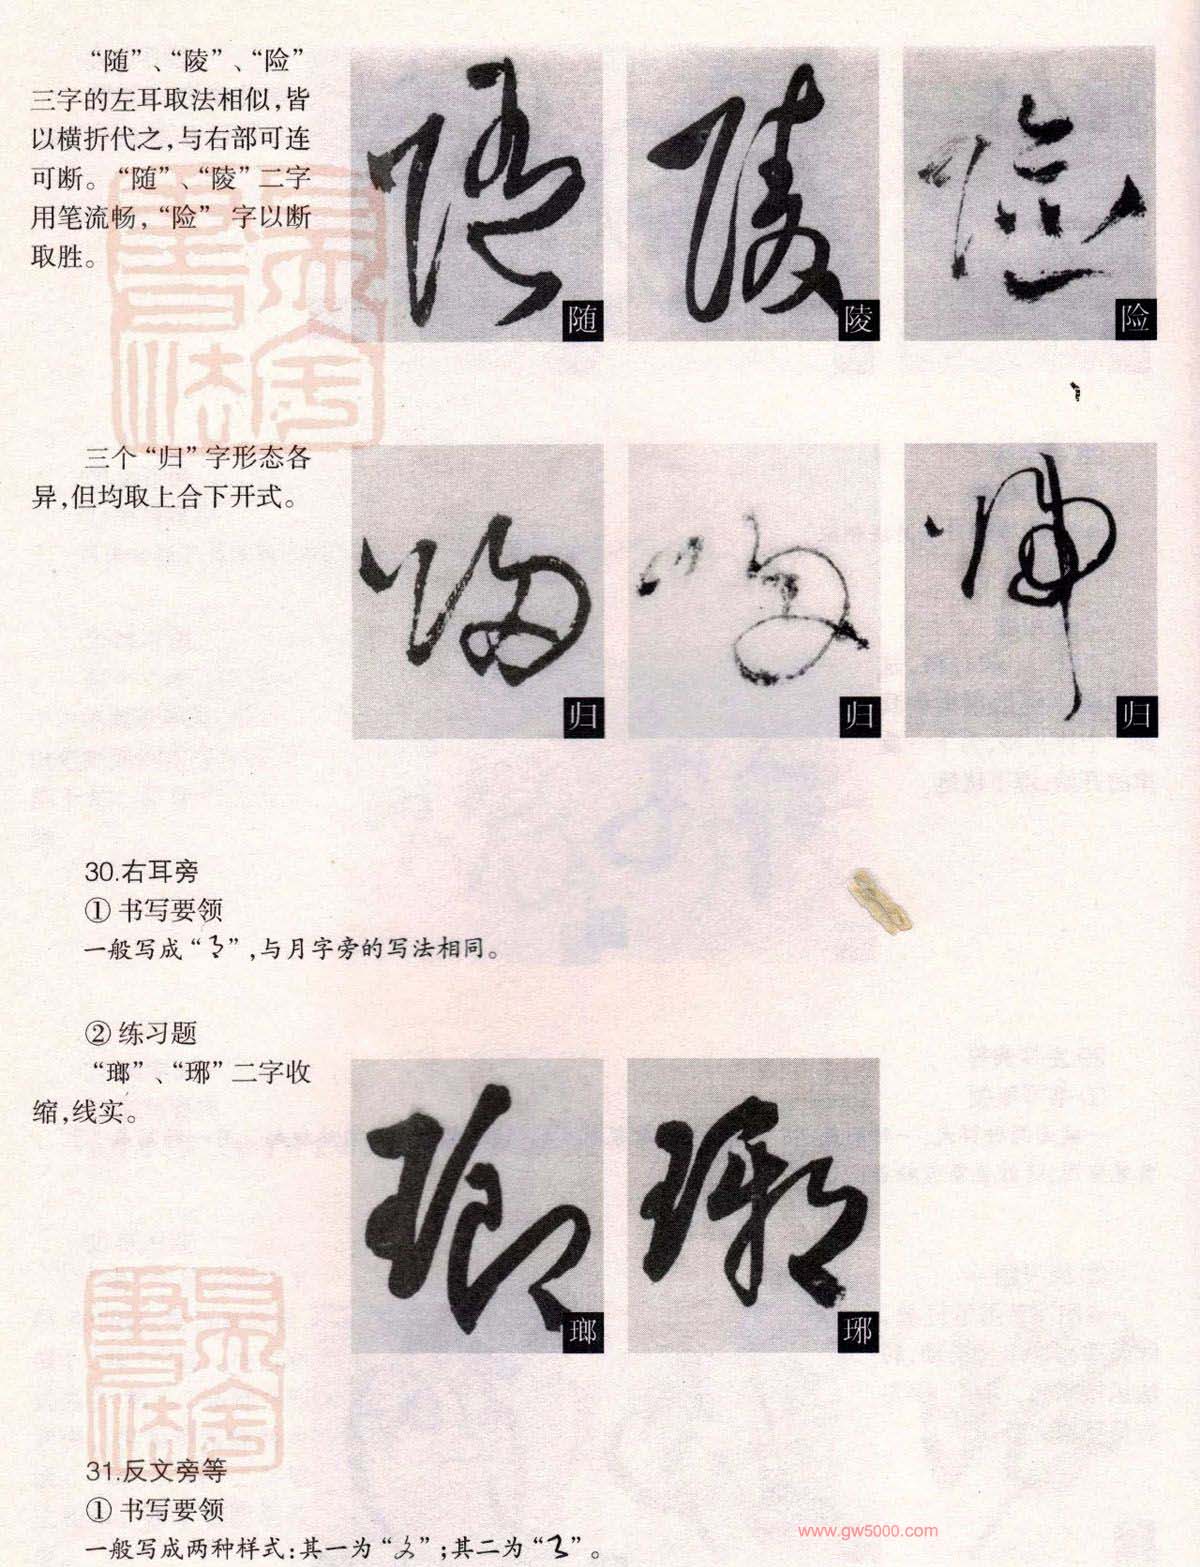 “随”、“陵”、“险”
三字的左耳取法相似,皆
以横折代之,与右部可连
可断。“随”、“陵”二字
用笔流畅,“险” 字以断
取胜。
随
陵
险
三个“归”字形态各
异,但均取上合下开式。
归
归
归
30.右耳旁
① 书写要领
一般写成“”,与月字旁的写法相同。
② 练习题
“瑯”、“琊”二字收
缩,线实。
瑯
琊
31.反文旁等
① 书写要领
一般写成两种样式:其一为“”;其二为“”。
www.gw5000.com